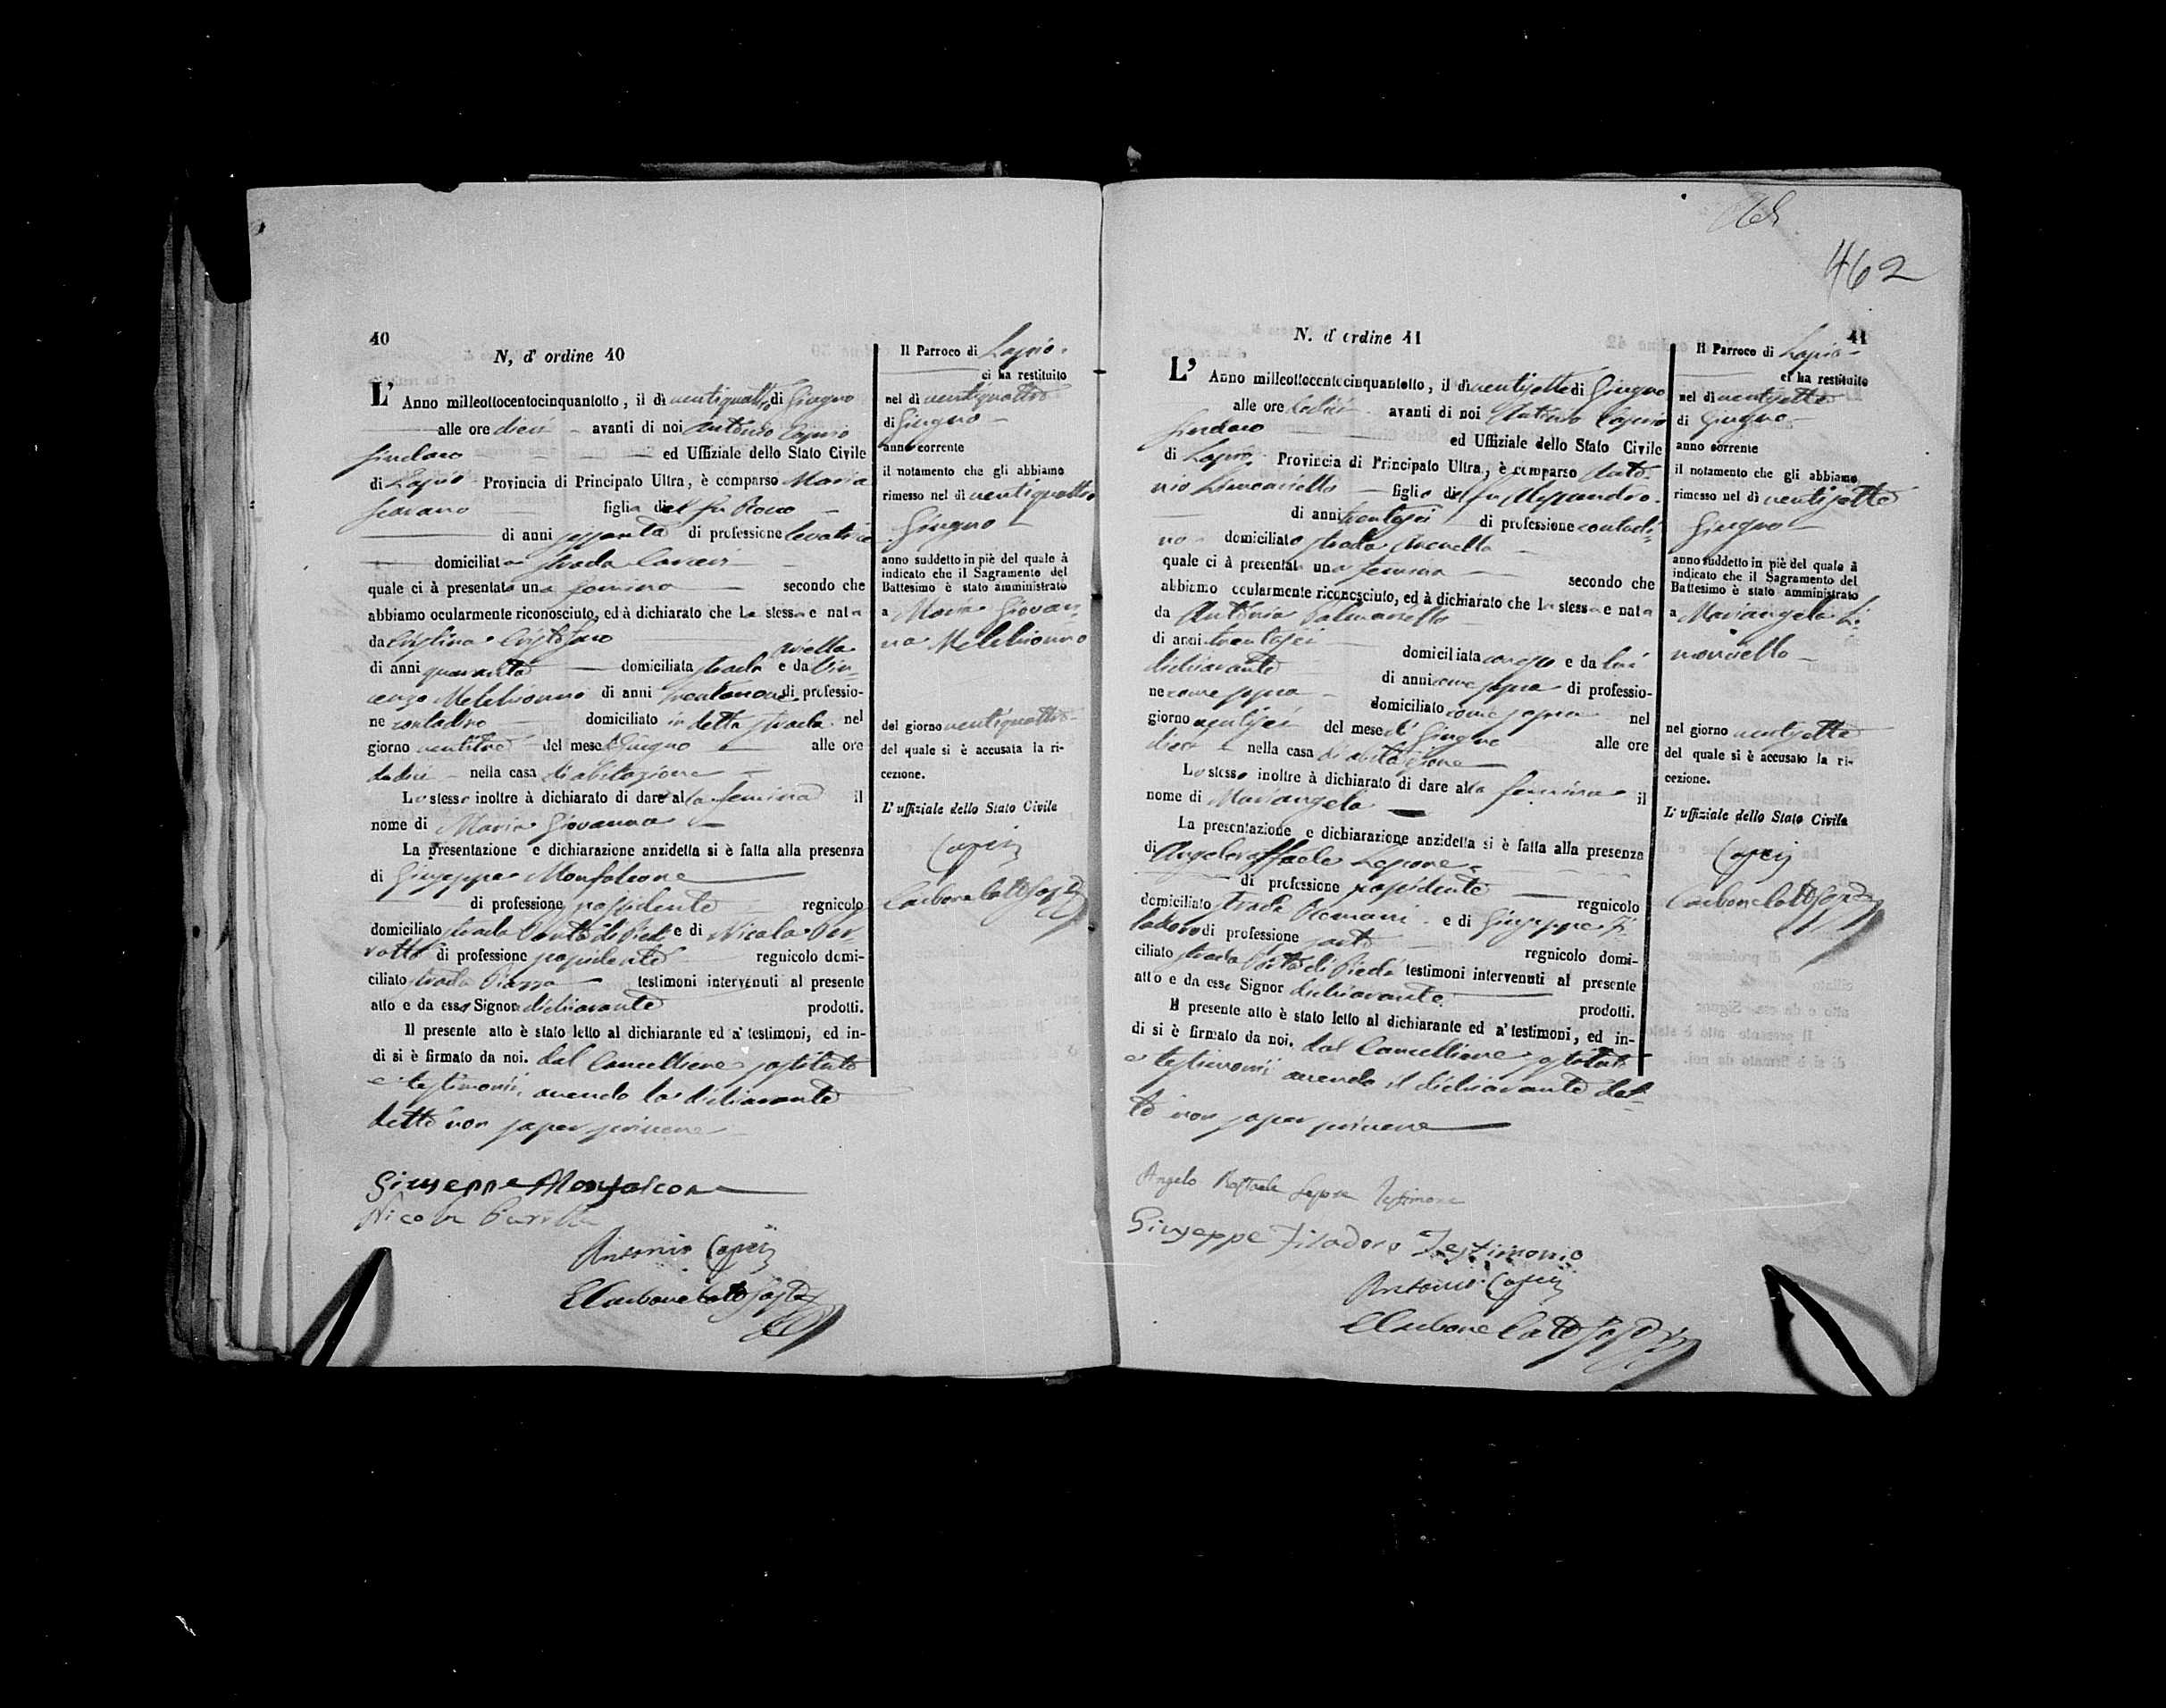 40
N, d' ordine 40
L' Anno milleottocentocinquantotto, il dì ventiquattro di Giugno
alle ore dieci avanti di noi Antonio Caprio
Sindaco ed Uffiziale dello Stato Civile
di Lapio Provincia di Principato Ultra, è comparso Maria
figlia del fu Rocco
di anni sessanta di professione levatrice
domiciliata strada
quale ci à presentato una femina secondo che
abbiamo ocularmente riconosciuto, ed à dichiarato che La stessa e nata
da Cristina Cristofaro
di anni quaranta domiciliata strada e da Vin-
cenzo Melchionno di anni trentanove di professio-
ne contadino domiciliato in detta strada nel
giorno ventitre del mese di Giugno alle ore
dodici nella casa di abitazione
Lo stesso inoltre à dichiarato di dare alla femina il
nome di Maria Giovanna
La presentazione e dichiarazione anzidetta si è fatta alla presenza
di Giuseppe Monfalcone
di professione possidente regnicolo
domiciliato strada e di Nicola
di professione possidente regnicolo domi-
ciliato strada Piazza testimoni intervenuti al presente
atto e da esso Signor dichiarante prodotti.
Il presente atto è stato letto al dichiarante ed a' testimoni, ed in-
di si è firmato da noi. dal Cancelliere sostituto
e testimonii, avendo la dichiarante
detto non saper scrivere
Giuseppe Monfalcone
Nicola
Antonio Caprio
Il Parroco di Lapio
ci ha restituito
nel dì ventiquattro
di Giugno
anno corrente
il notamento che gli abbiamo
rimesso nel dì ventiquattro
Giugno
anno suddetto in piè del quale à
indicato che il Sagramento del
Battesimo è stato amministrato
a Maria Giovan-
na Melchionno
del giorno ventiquattro
del quale si è accusata la ri-
cezione.
L' uffiziale dello Stato Civile
Caprio
462
41
N. d' ordine 41
L' Anno milleottocentocinquantotto, il dì ventisette di Giugno
alle ore avanti di noi Antonio Caprio
Sindaco ed Uffiziale dello Stato Civile
di Lapio Provincia di Principato Ultra, è comparso Anto-
nio figlio del fu Alessandro
di anni trentasei di professione contadi-
no domiciliato strada
quale ci à presentato una femina secondo che
abbiamo ocularmente riconosciuto, ed à dichiarato che La stessa e nata
da Antonia
di anni trentasei domiciliata e da
dichiarante di anni come sopra di professio-
ne come sopra domiciliato come sopra nel
giorno ventisei del mese di Giugno alle ore
dieci nella casa di abitazione
Lo stesso inoltre à dichiarato di dare alla femina il
nome di Mariangela
La presentazione e dichiarazione anzidetta si è fatta alla presenza
di Angeloraffaele
di professione possidente regnicolo
domiciliato strada Romani e di Giuseppe Fi-
ladoro di professione sarto regnicolo domi-
ciliato strada testimoni intervenuti al presente
atto e da esso Signor dichiarante prodotti.
Il presente atto è stato letto al dichiarante ed a' testimoni, ed in-
di si è firmato da noi. dal Cancelliere sostituto
e testimonii avendo il dichiarante det-
to non saper scrivere
Angelo Raffaele Testimone
Giuseppe Filadoro Testimonio
Antonio Caprio
Il Parroco di Lapio
ci ha restituito
nel dì ventisette
di Giugno
anno corrente
il notamento che gli abbiamo
rimesso nel dì ventisette
Giugno
anno suddetto in piè del quale à
indicato che il Sagramento del
Battesimo è stato amministrato
a Mariangela
nel giorno ventisette
del quale si è accusato la ri-
cezione.
L' uffiziale dello Stato Civile
Caprio